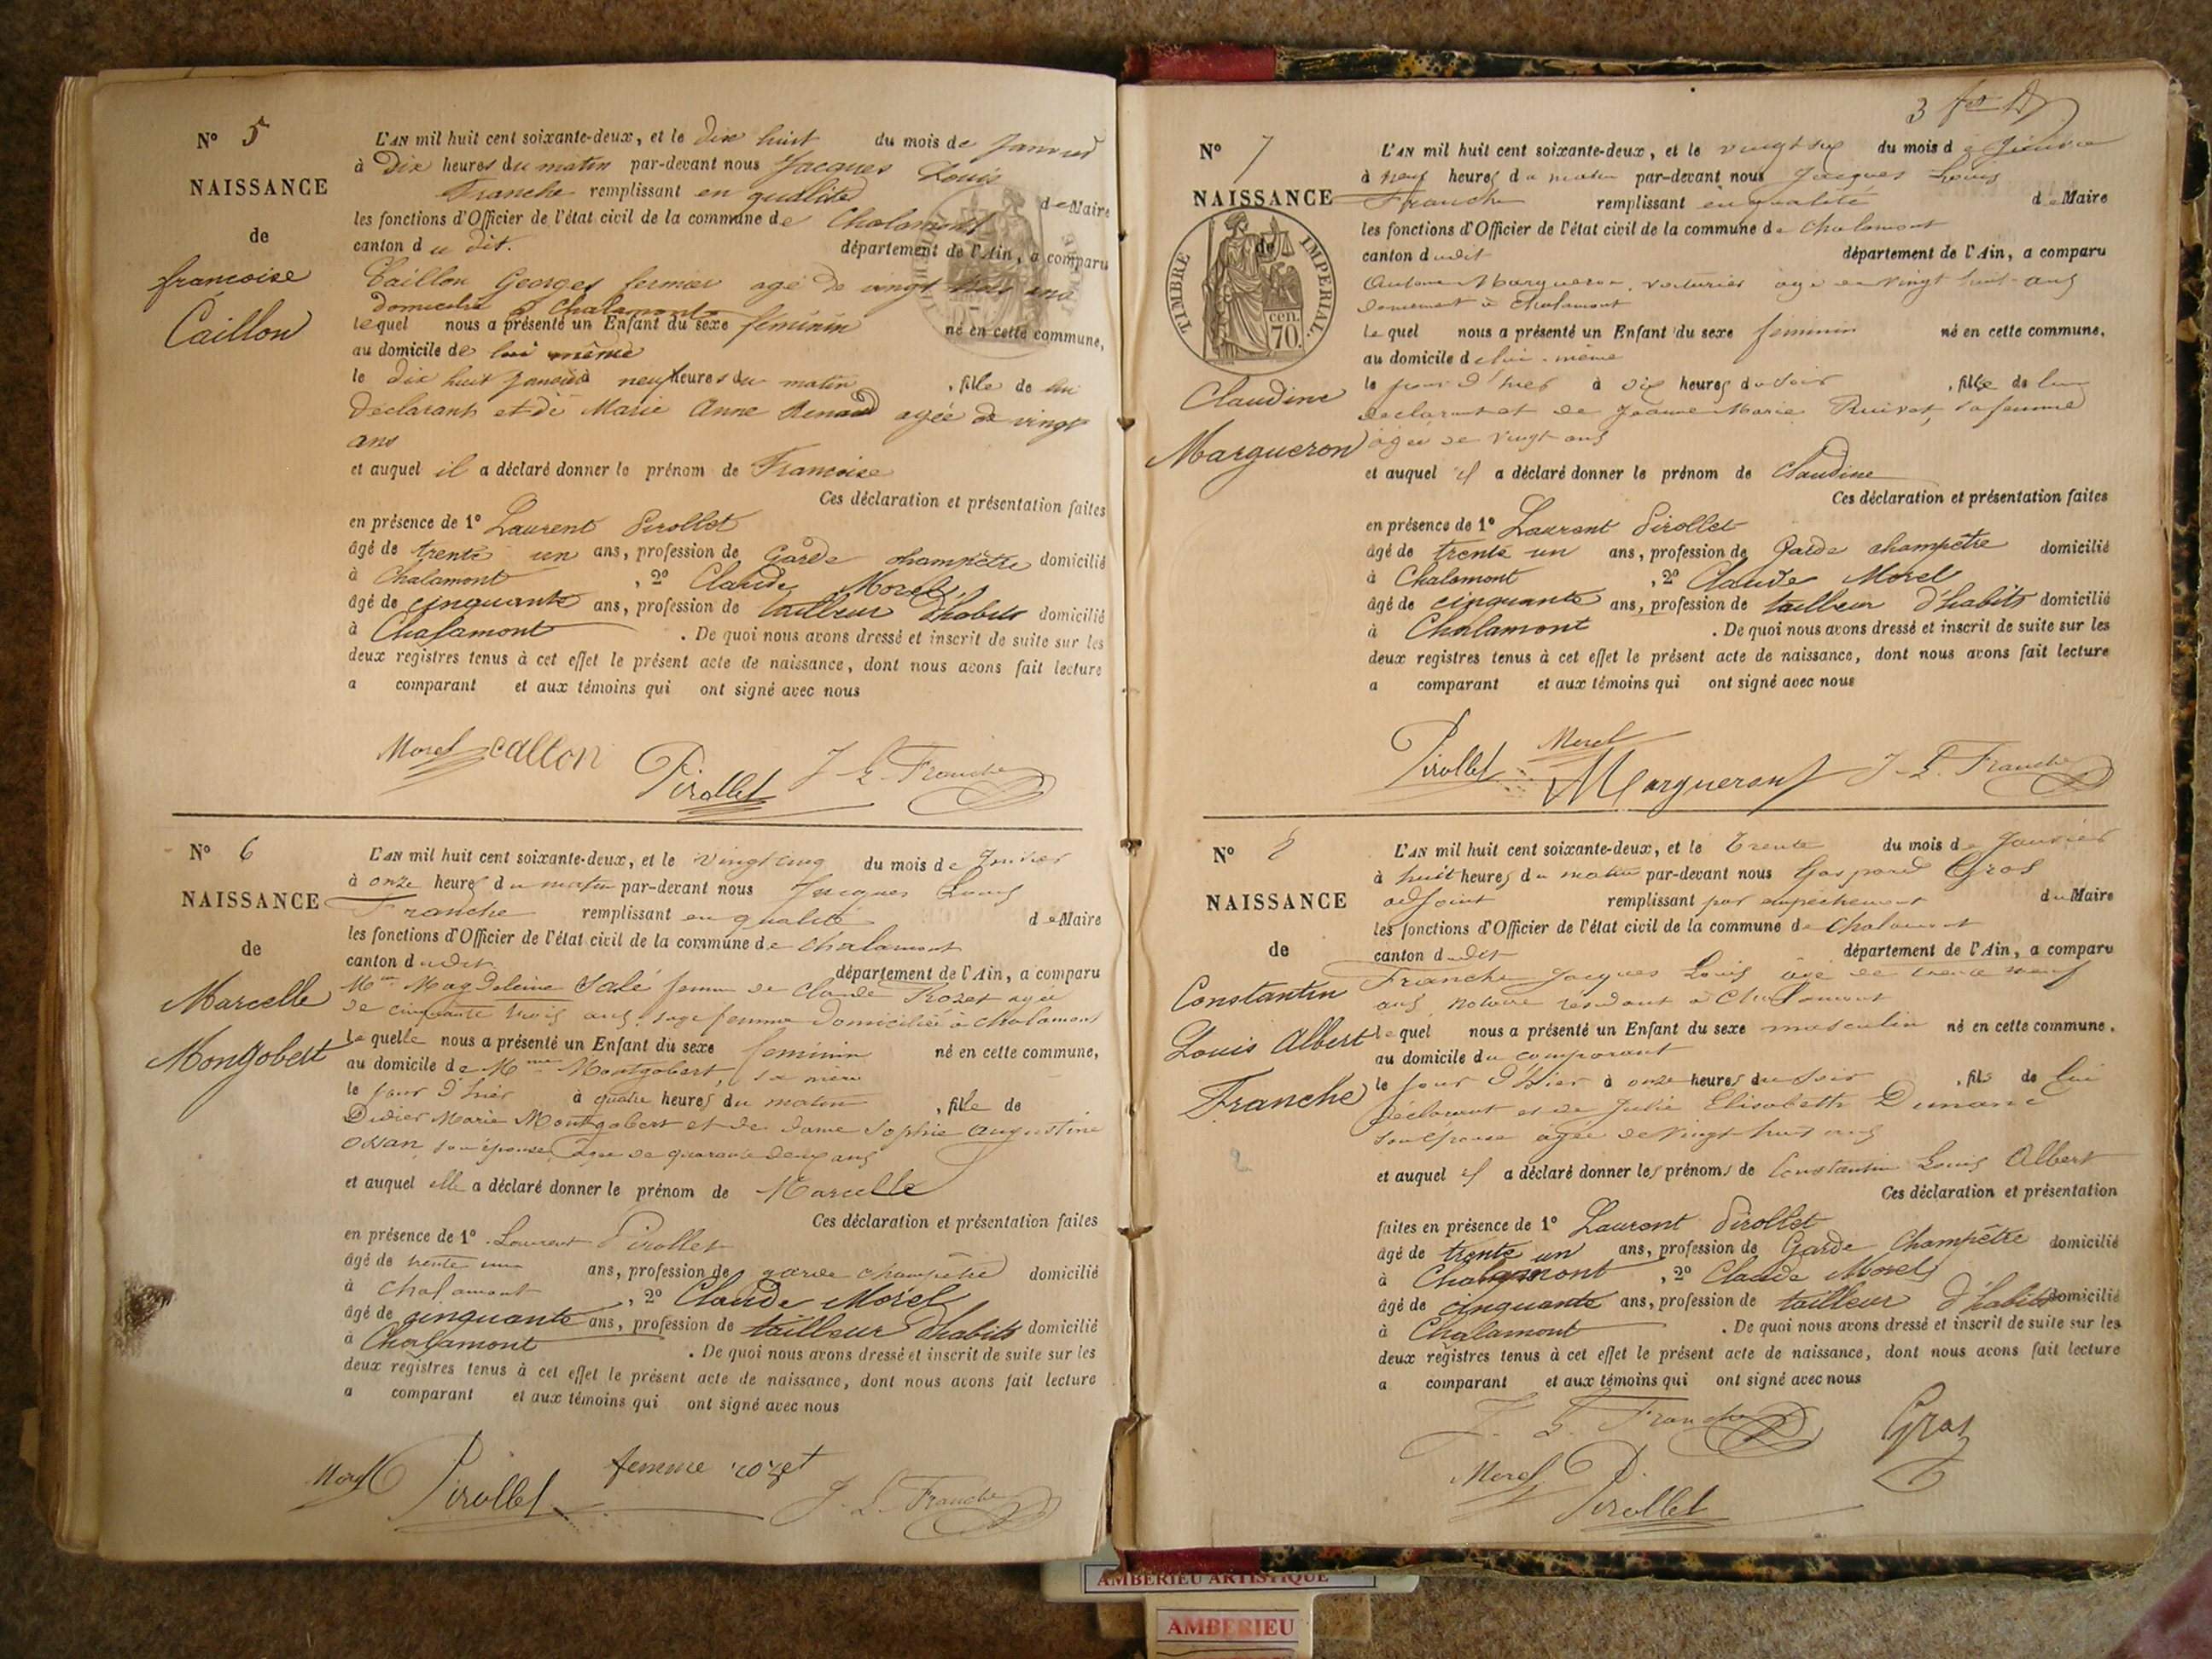 Nº 5
NAISSANCE
de
francoise
Caillon
L'AN mil huit cent soixante-deux, et le dix huit du mois de Janvier
à Dix heures du matin par-devant nous Jacques Louis
Franche remplissant en qualité de Maire
les fonctions d'Officier de l'état civil de la commune de Chalamont
canton du dit. département de l'Ain, a comparu
Caillon Georges fermier agé de vingt trois ans
domicilié à Chalamont
lequel nous a présenté un Enfant du sexe féminin né en cette commune,
au domicile de lui même
le dix huit Janvier à neuf heures du matin, fille de lui
déclarant et de Marie Anne Renaud agée de vingt
ans
et auquel il a déclaré donner le prénom de Francoise
Ces déclaration et présentation faites
en présence de 1º Laurent Pirollet
âgé de trente un ans, profession de Garde champêtre domicilié
à Chalamont, 2º Claude Morel,
âgé de cinquante ans, profession de tailleur d'habits domicilié
à Chalamont. De quoi nous avons dressé et inscrit de suite sur les
deux registres tenus à cet effet le présent acte de naissance, dont nous avons fait lecture
a comparant et aux témoins qui ont signé avec nous
Morel callon Pirollet J L Franche
Nº 6
NAISSANCE
de
Marcelle
Montgobert
L'AN mil huit cent soixante-deux, et le vingt cinq du mois de Janvier
à onze heures du matin par-devant nous Jacques Louis
Franche remplissant en qualité de Maire
les fonctions d'Officier de l'état civil de la commune de Chalamont
canton dudit département de l'Ain, a comparu
Mme Magdeleine Salé femme de Claude Rozet agée
de cinquante trois ans, sage femme domiciliée à Chalamont
laquelle nous a présenté un Enfant du sexe féminin né en cette commune,
au domicile de Mme Montgobert, sa mère
le jour d'hier à quatre heures du matin, fille de
Didier Marie Montgobert et de dame Sophie Augustine
son épouse, âgée de quarante deux ans
et auquel elle a déclaré donner le prénom de Marcelle
Ces déclaration et présentation faites
en présence de 1º Laurent Pirollet
âgé de trente un ans, profession de garde champêtre domicilié
à Chalamont, 2º Claude Morel
âgé de cinquante ans, profession de tailleur d'habits domicilié
à Chalamont. De quoi nous avons dressé et inscrit de suite sur les
deux registres tenus à cet effet le présent acte de naissance, dont nous avons fait lecture
a comparant et aux témoins qui ont signé avec nous
Morel Pirollet femme rozet J. L. Franche
3
Nº 7
NAISSANCE
de
TIMBRE IMPERIAL.
70. cen.
Claudine
Margueron
L'AN mil huit cent soixante-deux, et le vingt six du mois de Janvier
à neuf heures du matin par-devant nous Jacques Louis
Franche remplissant en qualité de Maire
les fonctions d'Officier de l'état civil de la commune de Chalamont
canton dudit département de l'Ain, a comparu
Antoine Margueron, voiturier âgé de vingt huit ans
demeurant à Chalamont
lequel nous a présenté un Enfant du sexe feminin né en cette commune,
au domicile de lui-même
le jour d'hier à dix heures du soir, fille de lui
déclarant et de Jeanne Marie Ruivet, sa femme
âgée de vingt ans
et auquel il a déclaré donner le prénom de Claudine
Ces déclaration et présentation faites
en présence de 1º Laurent Pirollet
âgé de trente un ans, profession de Garde champêtre domicilié
à Chalamont, 2º Claude Morel
âgé de cinquante ans, profession de tailleur d'habits domicilié
à Chalamont. De quoi nous avons dressé et inscrit de suite sur les
deux registres tenus à cet effet le présent acte de naissance, dont nous avons fait lecture
a comparant et aux témoins qui ont signé avec nous
Pirollet Morel Margueron J. L. Franche
Nº 8
NAISSANCE
de
Constantin
Louis Albert
Franche
2
L'AN mil huit cent soixante-deux, et le trente du mois de Janvier
à huit heures du matin par-devant nous Gaspard Gros
adjoint remplissant par empêchement du Maire
les fonctions d'Officier de l'état civil de la commune de Chalamont
canton dudit département de l'Ain, a comparu
Franche Jacques Louis âgé de trente neuf
ans, notaire résidant à Chalamont
lequel nous a présenté un Enfant du sexe masculin né en cette commune,
au domicile du comparant
le jour d'hier à onze heures du soir, fils de lui
déclarant et de Julie Elisabeth
son épouse âgée de vingt huit ans
et auquel il a déclaré donner les prénoms de Constantin Louis Albert
Ces déclaration et présentation
faites en présence de 1º Laurent Pirollet
âgé de trente un ans, profession de Garde Champêtre domicilié
à Chalamont, 2º Claude Morel
âgé de cinquante ans, profession de tailleur d'habits domicilié
à Chalamont. De quoi nous avons dressé et inscrit de suite sur les
deux registres tenus à cet effet le présent acte de naissance, dont nous avons fait lecture
a comparant et aux témoins qui ont signé avec nous
J. L. Franche Gros
Morel Pirollet
AMBERIEU ARTISTIQUE
AMBERIEU